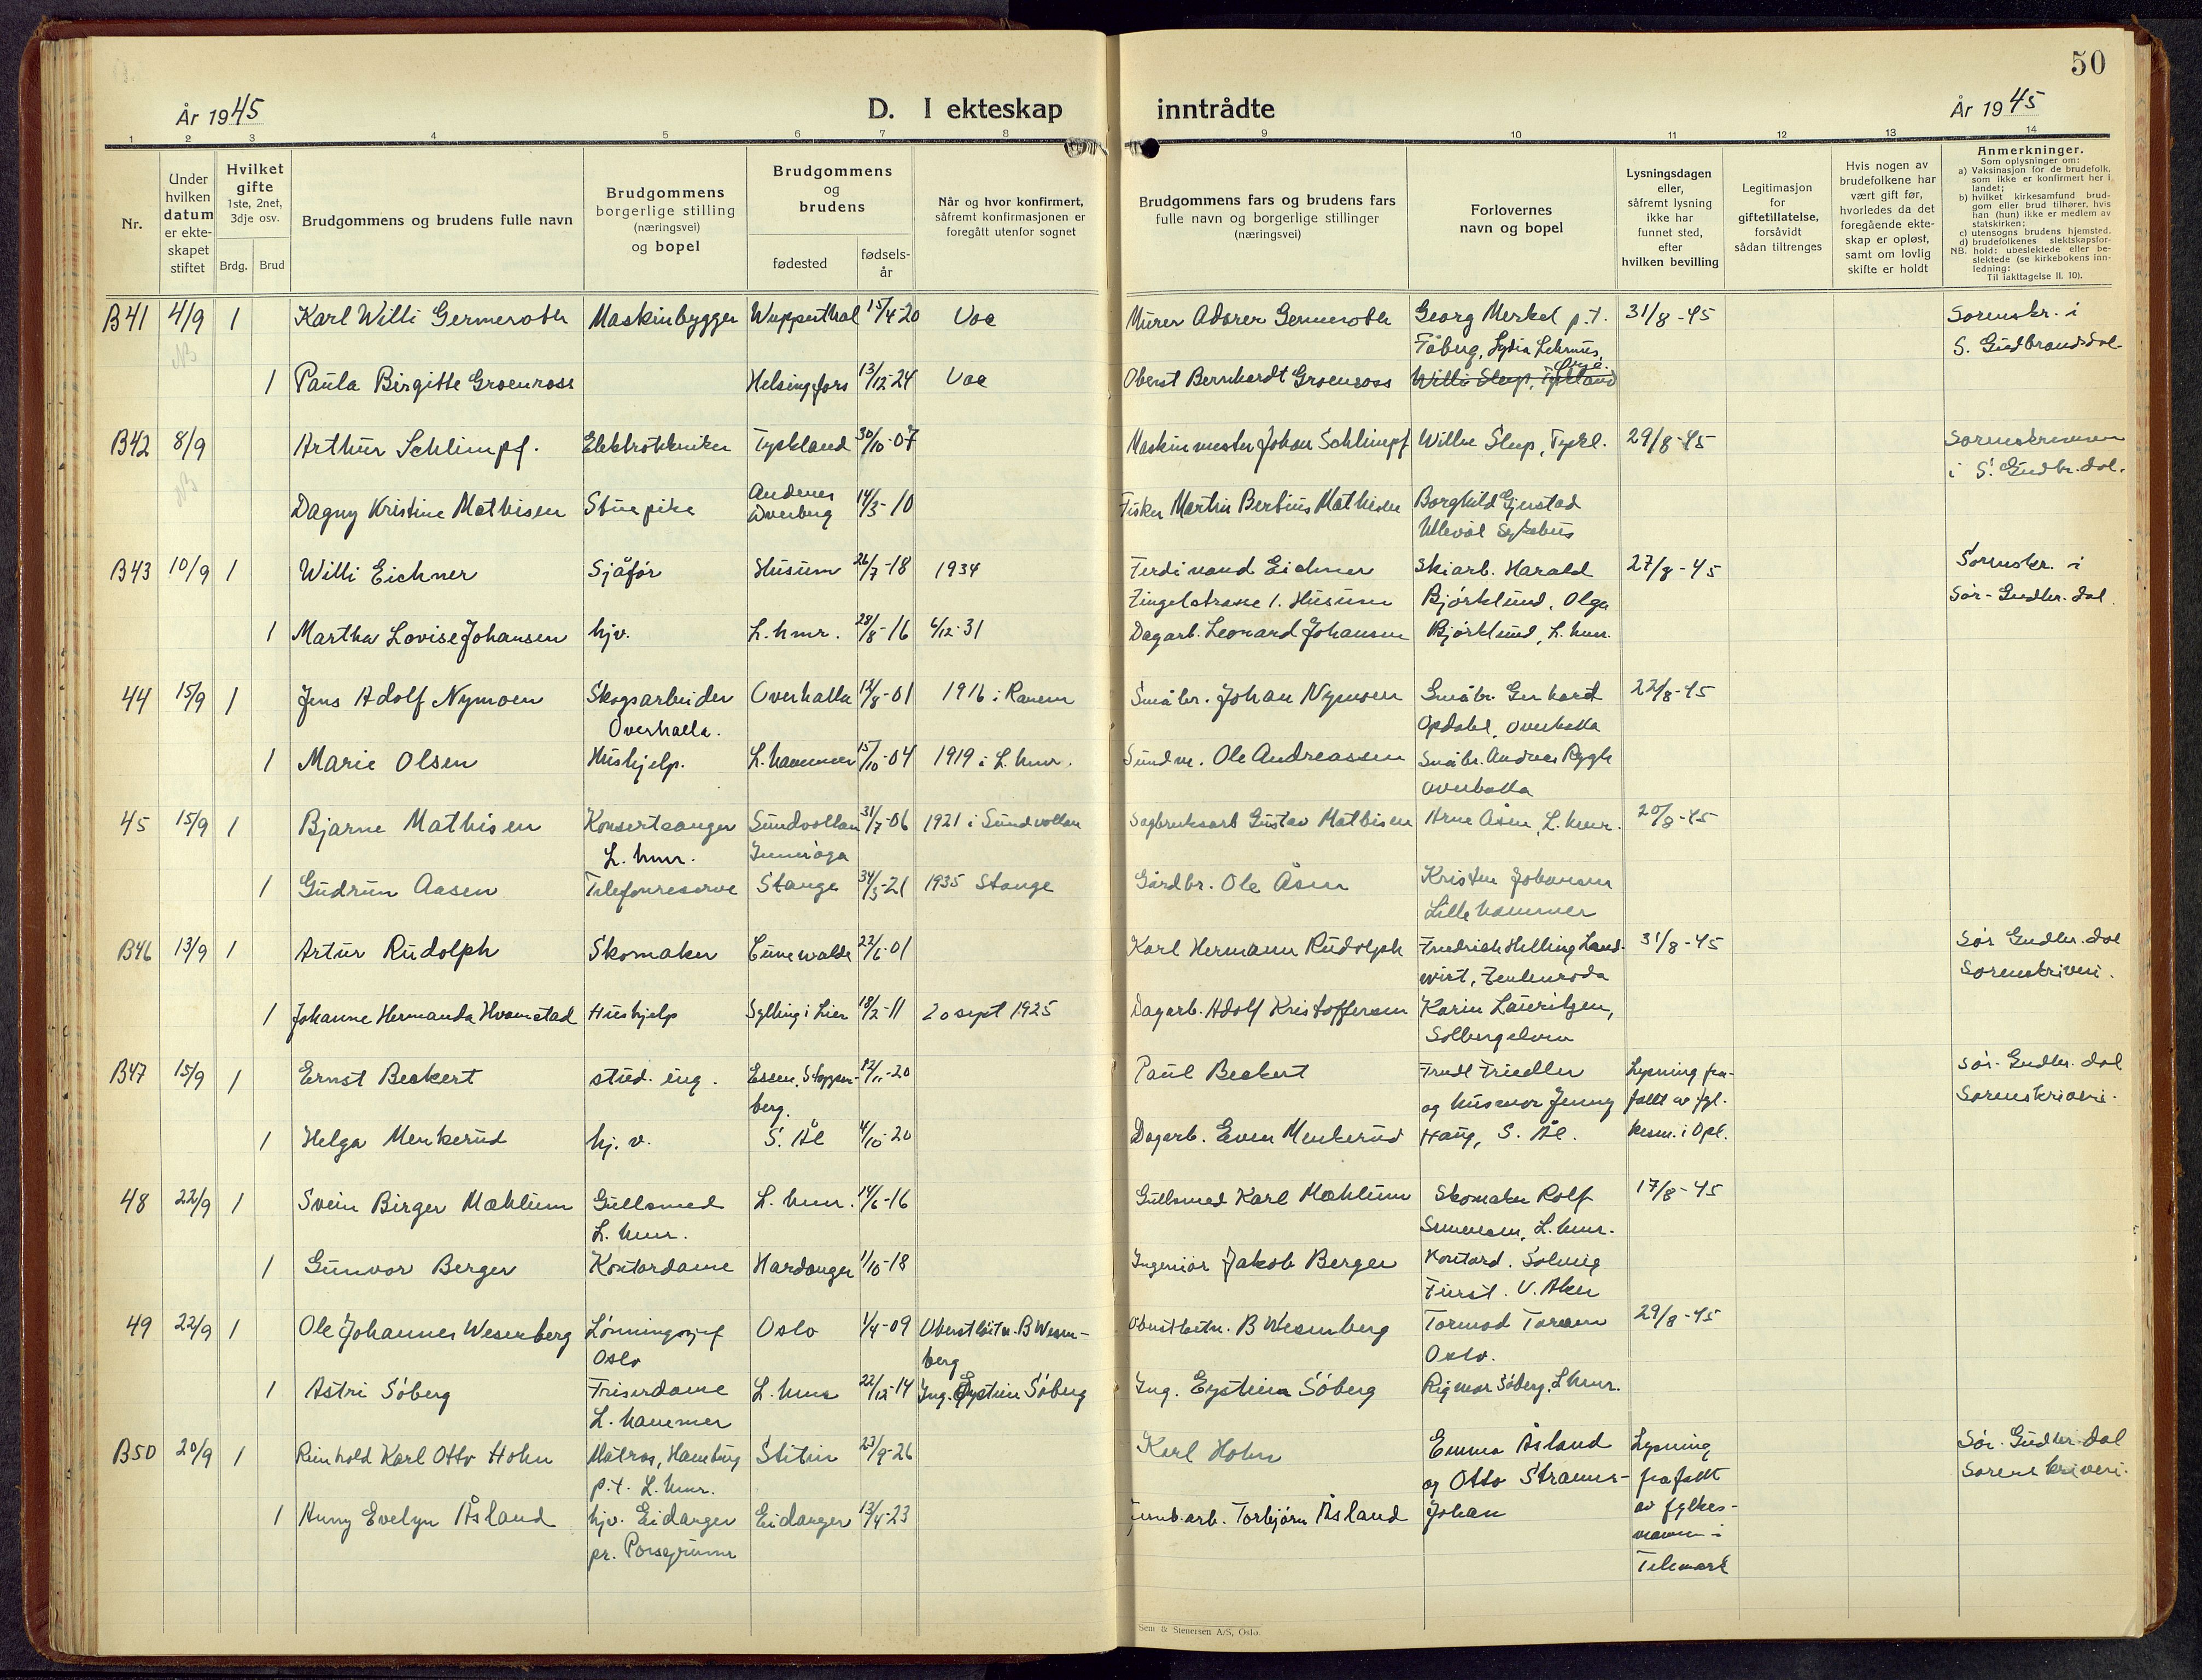 50
År 1945
D. I ekteskap inntrådte
År 1945
1 2 3 4 5 6 7 8 9 10 11 12 13 14
Nr.
Under hvilken datum er ekteskapet stiftet
Hvilket gifte 1ste, 2net, 3dje osv.
Brdg. Brud
Brudgommens og brudens fulle navn
Brudgommens borgerlige stilling (næringsvei) og bopel
Brudgommens og brudens
fødested
fødselsår
Når og hvor konfirmert, såfremt konfirmasjonen er foregått utenfor sognet
Brudgommens fars og brudens fars fulle navn og borgerlige stillinger (næringsvei)
Forlovernes navn og bopel
Lysningsdagen eller, såfremt lysning ikke har funnet sted, efter hvilken bevilling
Legitimasjon for giftetillatelse, forsåvidt sådan tiltrenges
Hvis nogen av brudefolkene har vært gift før, hvorledes da det foregående ekteskap er opløst, samt om lovlig skifte er holdt
Anmerkninger.
Som oplysninger om:
a) Vaksinasjon for de brudefolk, som ikke er konfirmert her i landet;
b) hvilket kirkesamfund brudgom eller brud tilhører, hvis han (hun) ikke er medlem av statskirken;
c) utensogns brudens hjemsted.
d) brudefolkenes slektskapsforhold: ubeslektede eller beslektede (se kirkebokens innledning:
NB.
Til iakttagelse II. 10).
B41 4/9 1 Karl Willi Germeroth Maskinbygger Wuppenthal 15/4-20 Uoc Murer Germeroth Georg Merkel p.t. 31/8-45 Sorenskr. i
Fåberg, Lydia S. Gudbrandsdal-
1 Paula Birgitte Groenross Helsingfors 13/12-24 Uoc Oberst Bernhardt Groenross
B42 8/9 Arthur Schlimpf. Elektrotekniker Tyskland 30/10-07 Maskinmester Johan Schlimpf Willie Step, Tyskl. 29/8-45 Sorenskriveren
i S. Gudbr. dal.
Dagny Kristine Mathisen Stuepike Andenes 14/3-10 Fisker Martin Bertius Mathisen Borghild Gjestad
Ullevål Sykehus
B43 10/9 1 Willi Eichner Sjåfør Husum 26/7-18 1934 Ferdinand Eichner Skiarb. Harald 27/8-45 Sorenskr. i
Zingelstrasse 1. Husum Bjørklund, Olga Sør-Gudbr. dal.
1 Martha Lovise Johansen hjv. L.hmr. 28/8-16 4/12-31 Dagarb. Leonard Johansen Bjørklund, L.hmr.
44 15/9 1 Jens Adolf Nymoen Skogsarbeider Overhalla 12/8-01 1916 i Ranem Småbr. Johan Nymoen Småbr. Gerhard 22/8-45
Overhalla. Opdahl, Overhalla
1 Marie Olsen Hushjelp. L.hammer 15/10-04 1919 i L.hmr. Ole Andreassen Småbr. Andreas Rygh
Overhalla
45 15/9 1 Bjarne Mathisen Konsertsanger Sundvollen 31/7-06 1921 i Sundvollen Sagbruksarb Gustav Mathisen Arne Åsen, L.hmr. 20/8-45
L.hmr.
1 Gudrun Aasen Telefonreserve Stange 1935 Stange Gårdbr. Ole Åsen Kristen Johansen
Lillehammer
B46 13/9 1 Artur Rudolph Skomaker Cunewalde 22/6-01 Karl Hermann Rudolph Friedrich Helling Land- 31/8-45 Sør Gudbr. dal
wirt, Zeulenroda Sorenskriveri.
1 Johanne Hermanda Hvamstad Hushjelp Sylling i Lier 18/2-11 20 sept 1925 Dagarb. Adolf Kristoffersen Karin Lauritzen,
Solbergelven
B47 15/9 1 Ernst Beckert stud. ing. Essen, Stoppen- 12/11-20 Paul Beckert Trudl Friedler Lysning fra- Sør-Gudbr. dal
berg. og husmor Jenny falt av fyl- Sorenskriveri.
1 Helga Menkerud hj. v. S. Ål 4/10-20 Dagarb. Even Menkerud Haug, S. Ål. kesm. i Opl.
48 22/9 1 Svein Birger Mæhlum Gullsmed L.hmr. 14/6-16 Gullsmed Karl Mæhlum Skomaker Rolf 17/8-45
L.hmr. Simensen, L.hmr.
1 Gunvor Berger Kontordame Hardanger 1/10-18 Ingeniør Jakob Berger Kontord. Solveig
Furst. V. Aker
49 22/9 1 Ole Johannes Wesenberg Lønningssjef Oslo 1/4-09 Oberstløitn. B Wesen- Oberstløitn. B Wesenberg Tormod 29/8-45
Oslo berg Oslo.
1 Astri Søberg Friserdame L.hmr 22/12-14 Ing. Eystein Søberg Ing. Eystein Søberg Rigmor Søberg, Lhmr.
L.hammer
B50 20/9 1 Reinhold Karl Otto Hohn Matros, Hamburg Stettin 23/9-26 Karl Hohn Emma Åsland Lysning Sør-Gudbr. dal
p.t. L.hmr. og Otto frafalt Sorenskriveri.
1 Anny Evelyn Åsland hjv. Eidanger Eidanger 13/4-23 Jernb.arb. Torbjørn Åsland Johan av fylkes-
pr. Porsgrunn mann i
Telemark
Sem & Stenersen A/S, Oslo.